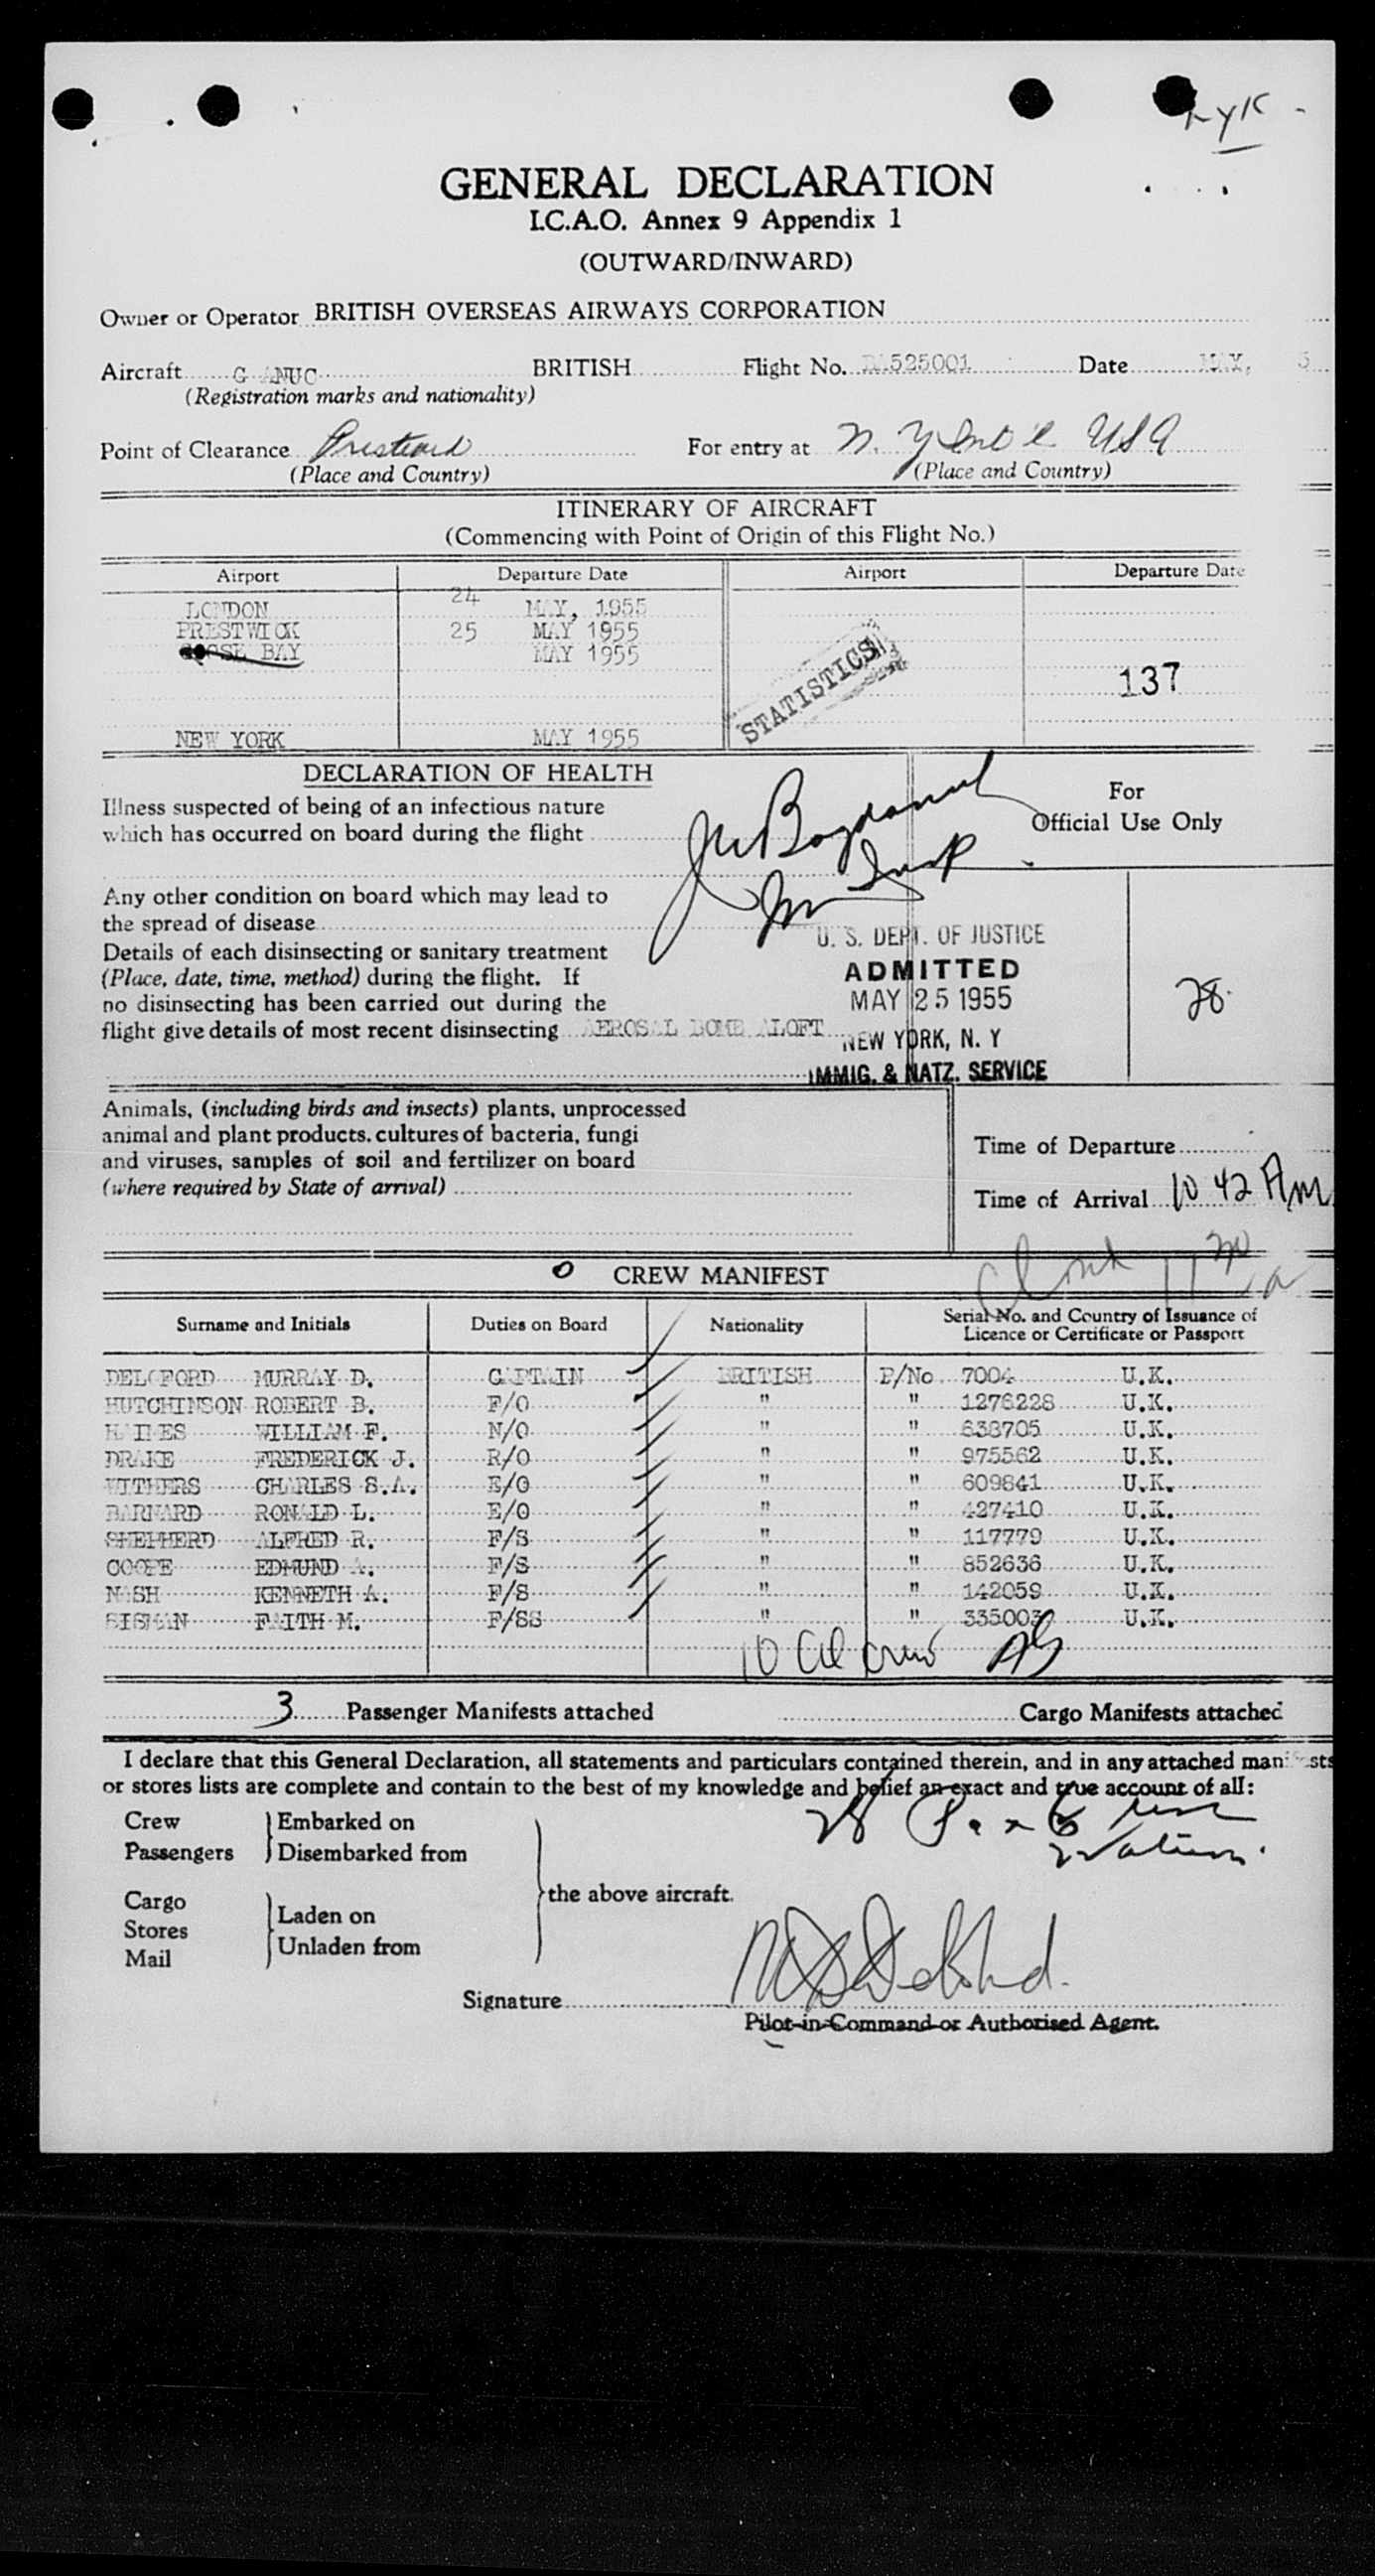 GENERAL DECLARATION
I.C.A.O. Annex 9 Appendix 1
(OUTWARD/INWARD)
Owner or Operator BRITISH OVERSEAS AIRWAYS CORPORATION
Aircraft G ANUC BRITISH Flight No. BA525001 Date MAY, 5
(Registration marks and nationality)
Point of Clearance For entry at N. Y USA
(Place and Country) (Place and Country)
ITINERARY OF AIRCRAFT
(Commencing with Point of Origin of this Flight No.)
Airport Departure Date Airport Departure Date
LONDON 24 MAY, 1955
PRESTWICK 25 MAY 1955
GOOSE BAY MAY 1955
STATISTICS
137
NEW YORK MAY 1955
DECLARATION OF HEALTH
Illness suspected of being of an infectious nature
which has occurred on board during the flight
For
Official Use Only
Any other condition on board which may lead to
the spread of disease
Details of each disinsecting or sanitary treatment
(Place, date, time, method) during the flight. If
no disinsecting has been carried out during the
flight give details of most recent disinsecting AEROSAL BOMB ALOFT
U. S. DEPT. OF JUSTICE
ADMITTED
MAY 25 1955
NEW YORK, N. Y
IMMIG. & NATZ. SERVICE
28
Animals, (including birds and insects) plants, unprocessed
animal and plant products, cultures of bacteria, fungi
and viruses, samples of soil and fertilizer on board
(where required by State of arrival)
Time of Departure
Time of Arrival 10 42 Am
0 CREW MANIFEST
Surname and Initials Duties on Board Nationality Serial No. and Country of Issuance of
Licence or Certificate or Passport
DELOFORD MURRAY D. CAPTAIN BRITISH P/No 7004 U.K.
HUTCHINSON ROBERT B. F/O " " 1276228 U.K.
HAINES WILLIAM F. N/O " " 638705 U.K.
DRAKE FREDERICK J. R/O " " 975562 U.K.
WITHERS CHARLES S.A. E/O " " 609841 U.K.
BARNARD RONALD L. E/O " " 427410 U.K.
SHEPHERD ALFRED R. F/S " " 117779 U.K.
COOPE EDMUND A. F/S " " 852636 U.K.
NASH KENNETH A. F/S " " 142059 U.K.
SISMAN FAITH M. F/SS " " 335003 U.K.
10 crew
3 Passenger Manifests attached Cargo Manifests attached
I declare that this General Declaration, all statements and particulars contained therein, and in any attached manifests
or stores lists are complete and contain to the best of my knowledge and belief an exact and true account of all:
Crew Embarked on
Passengers Disembarked from
28 Pax
the above aircraft.
Cargo
Stores Laden on
Mail Unladen from
Signature
Pilot-in-Command or Authorised Agent.